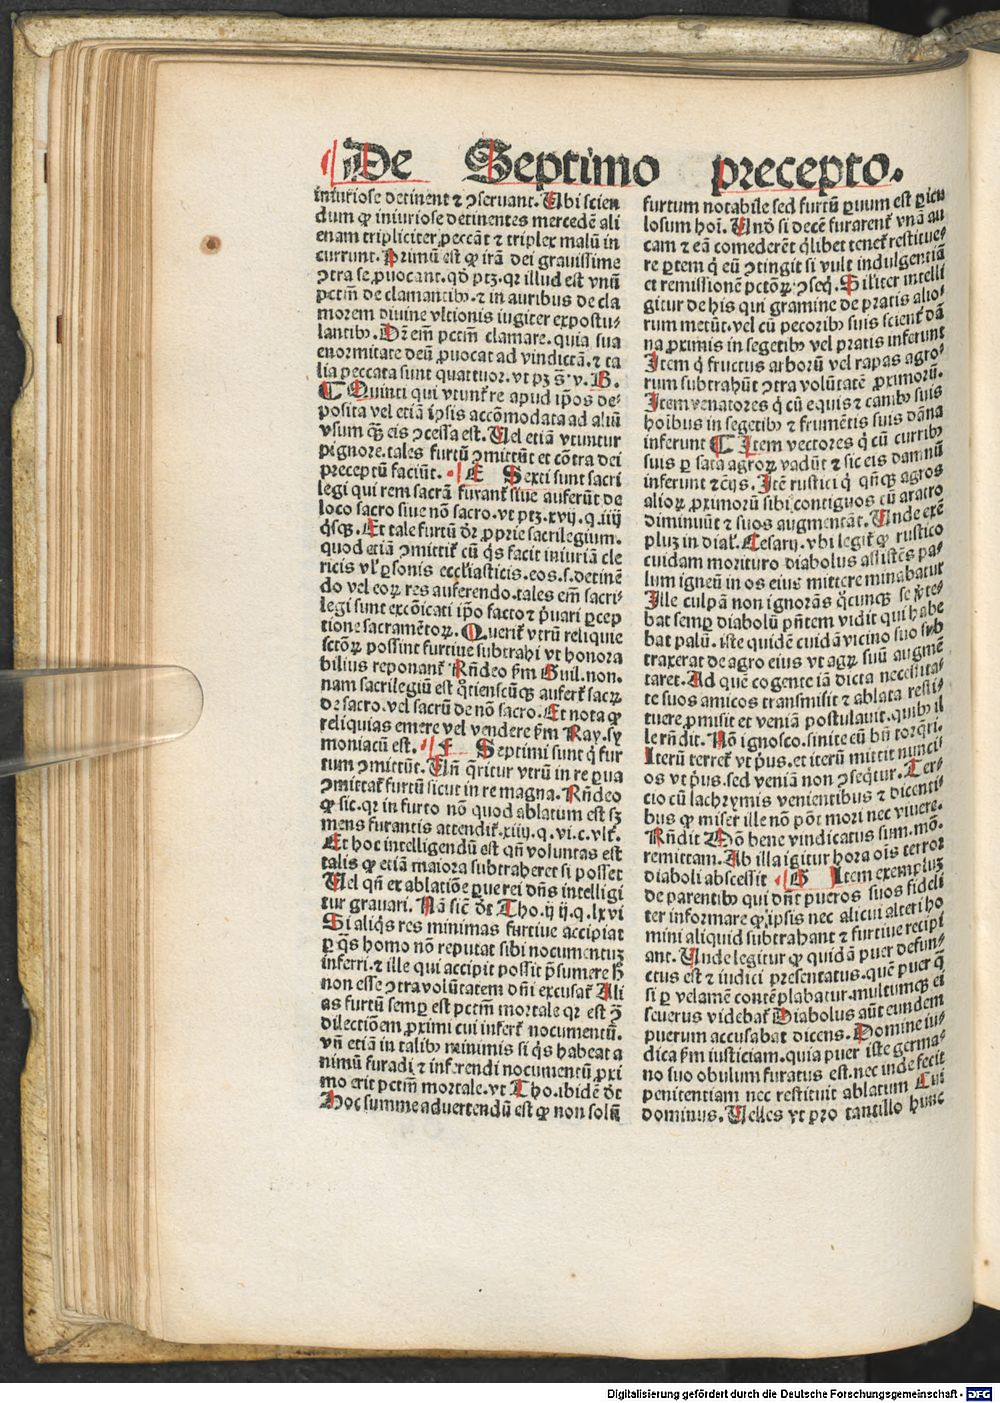 De Septimo precepto.
iniuriose detinent ⁊ ꝯseruant. Ubi scien
dum ꝙ iniuriose detinentes mercedē ali
enam tripliciter peccāt ⁊ triplex malū in
currunt. Primū est ꝙ irā dei grauissime
ꝯtra se ꝓuocant. qď ptꝫ. qꝛ illud est vnū
pctm̄ de clamantibꝰ. ⁊ in auribus de cla
morem diuine vltionis iugiter expostu⸗
lantibꝰ. Dr̄ em̄ pctm̄ clamare. quia sua
enormitate deū ꝓuocat ad vindictā. ⁊ ta
lia peccata sunt quattuor. vt pꝫ s̄. v. B.
¶ Quinti qui vtunt᷑ re apud ip̄os de⸗
posita vel etiā ipsis accōmodata ad aliū
vsum qȝ̄ eis ꝯcessa est. Uel etiā vtuntur
pignore. tales furtū ꝯmittūt et cōtra dei
preceptū faciūt. E Sexti sunt sacri
legi qui rem sacrā furant᷑ siue auferūt de
loco sacro siue nō sacro. vt ptꝫ. xvij. q. iiij
q̇sqꝫ. Et tale furtū dr̄ ꝓprie sacrilegium.
quod etiā ꝯmittit᷑ cū q̇s facit iniuriā cle
ricis vl̓ ꝑsonis eccl̓iasticis. eos. s. detinē
do vel eoꝝ res auferendo. tales em̄ sacri⸗
legi sunt excōicati ip̄o facto ⁊ p̓uari ꝑcep
tione sacramētoꝝ. Querit᷑ vtrū reliquie
sctōꝝ possint furtiue subtrahi vt honora
bilius reponant᷑ Rn̄deo ẜm Guil. non.
nam sacrilegiū est q̄tienscūqꝫ aufert᷑ sacꝝ
de sacro. vel sacrū de nō sacro. Et nota ꝙ
reliquias emere vel vendere ẜm Ray. sy
moniacū est. F Septimi sunt q̇ fur
tum ꝯmittūt. Un̄ q̄ritur vtrū in re ꝑua
ꝯmittat᷑ furtū sicut in re magna. Rn̄deo
ꝙ sic. qꝛ in furto nō quod ablatum est sꝫ
mens furantis attendit᷑. xiiij. q. vi. c. vlt᷑.
Et hoc intelligendū est qn̄ voluntas est
talis ꝙ etiā maiora subtraheret si posset
Uel qn̄ ex ablatiōe ꝑue rei dn̄s intelligi
tur grauari. Nā sic̄ dt̄ Tho. ij ij. q. lxvi
Si aliq̇s res minimas furtiue accipiat
ꝑ q̄s homo nō reputat sibi nocumentuꝫ
inferri. ⁊ ille qui accipit possit p̄sumere h̄
non esse ꝯtra volūtatem dn̄i excusat᷑ Ali
as furtū semꝑ est pctm̄ mortale qꝛ est ꝯ̄
dilectiōem ꝓximi cui infert᷑ nocumentū.
vn̄ etiā in talibꝰ minimis si q̇s habeat a
nimū furadi ⁊ inferendi nocumentū ꝓxi
mo erit pctm̄ mortale. vt Tho. ibidē dt̄
Hoc summe aduertendū est ꝙ non solū
furtum notabile sed furtū ꝑuum est ꝑicu
losum hoī. Un̄ si decē furarent᷑ vnā au
cam ⁊ eā comederēt q̇libet tenet᷑ restitue⸗
re ꝑtem q̇ eū ꝯtingit si vult indulgentiā
et remissionē pctōꝝ ꝯseq̇. Siliter intelli
gitur de his qui gramine de pratis alio⸗
rum metūt. vel cū pecoribꝰ suis scient᷑ dā
na ꝓximis in segetibꝰ vel pratis inferunt
Item q̇ fructus arborū vel rapas agro⸗
rum subtrahūt ꝯtra volūtatē ꝓximorū.
Item venatores q̇ cū equis ⁊ canibꝰ suis
hoībus in segetibꝰ ⁊ frumētis suis dāna
inferunt ¶ Item vectores q̇ cū curribꝰ
suis ꝑ sata agroꝝ vadūt ⁊ sic eis damnū
inferunt ⁊c̄ijs. Itē rustici q̇ qn̄qꝫ agros
alioꝝ ꝓximorū sibi contiguos cū aratro
diminuūt ⁊ suos augmentāt. Unde exē
pluꝫ in dial. Cesarij. vbi legit᷑ ꝙ rustico
cuidam morituro diabolus assistēs pa⸗
lum igneū in os eius mittere minabatur
Ille culpā non ignorās q̇cunqꝫ se v̓te⸗
bat semꝑ diabolū p̄ntem vidit qui habe
bat palū. iste quidē cuidā vicino suo sub
traxerat de agro eius vt agꝝ suū augmē
taret. Ad quē cogente iā dicta necessita⸗
te suos amicos transmisit ⁊ ablata resti⸗
tuere ꝓmisit et veniā postulauit. quibꝰ il
le rn̄dit. Nō ignosco. sinite cū bn̄ torq̄ri.
Iterū terret᷑ vt p̓us. et iterū mittit nunci
os vt p̓us. sed veniā non ꝯseq̇tur. Ter⸗
cio cū lachrymis venientibus ⁊ dicenti⸗
bus ꝙ miser ille nō pōt mori nec viuere.
Rn̄dit Mō bene vindicatus sum. mō.
remittam. Ab illa igitur hora oīs terror
diaboli abscessit G Item exempluꝫ
de parentibꝰ qui dn̄t pueros suos fideli
ter informare ꝙ ipsis nec alicui alteri ho
mini aliquid subtrahant ⁊ furtiue recipi
ant. Unde legitur ꝙ quidā puer defun⸗
ctus est ⁊ iudici presentatus. quē puer q̄
si ꝑ velamē contēplabatur. multumqꝫ ei
seuerus videbat᷑ Diabolus aūt eundem
puerum accusabat dicens. Domine iu⸗
dica ẜm iusticiam. quia puer iste germa⸗
no suo obulum furatus est. nec inde fecit
penitentiam nec restituit ablatum Cui
dominus. Uelles vt pro tantillo hunc
Digitalisierung gefördert durch die Deutsche Forschungsgemeinschaft - DFG